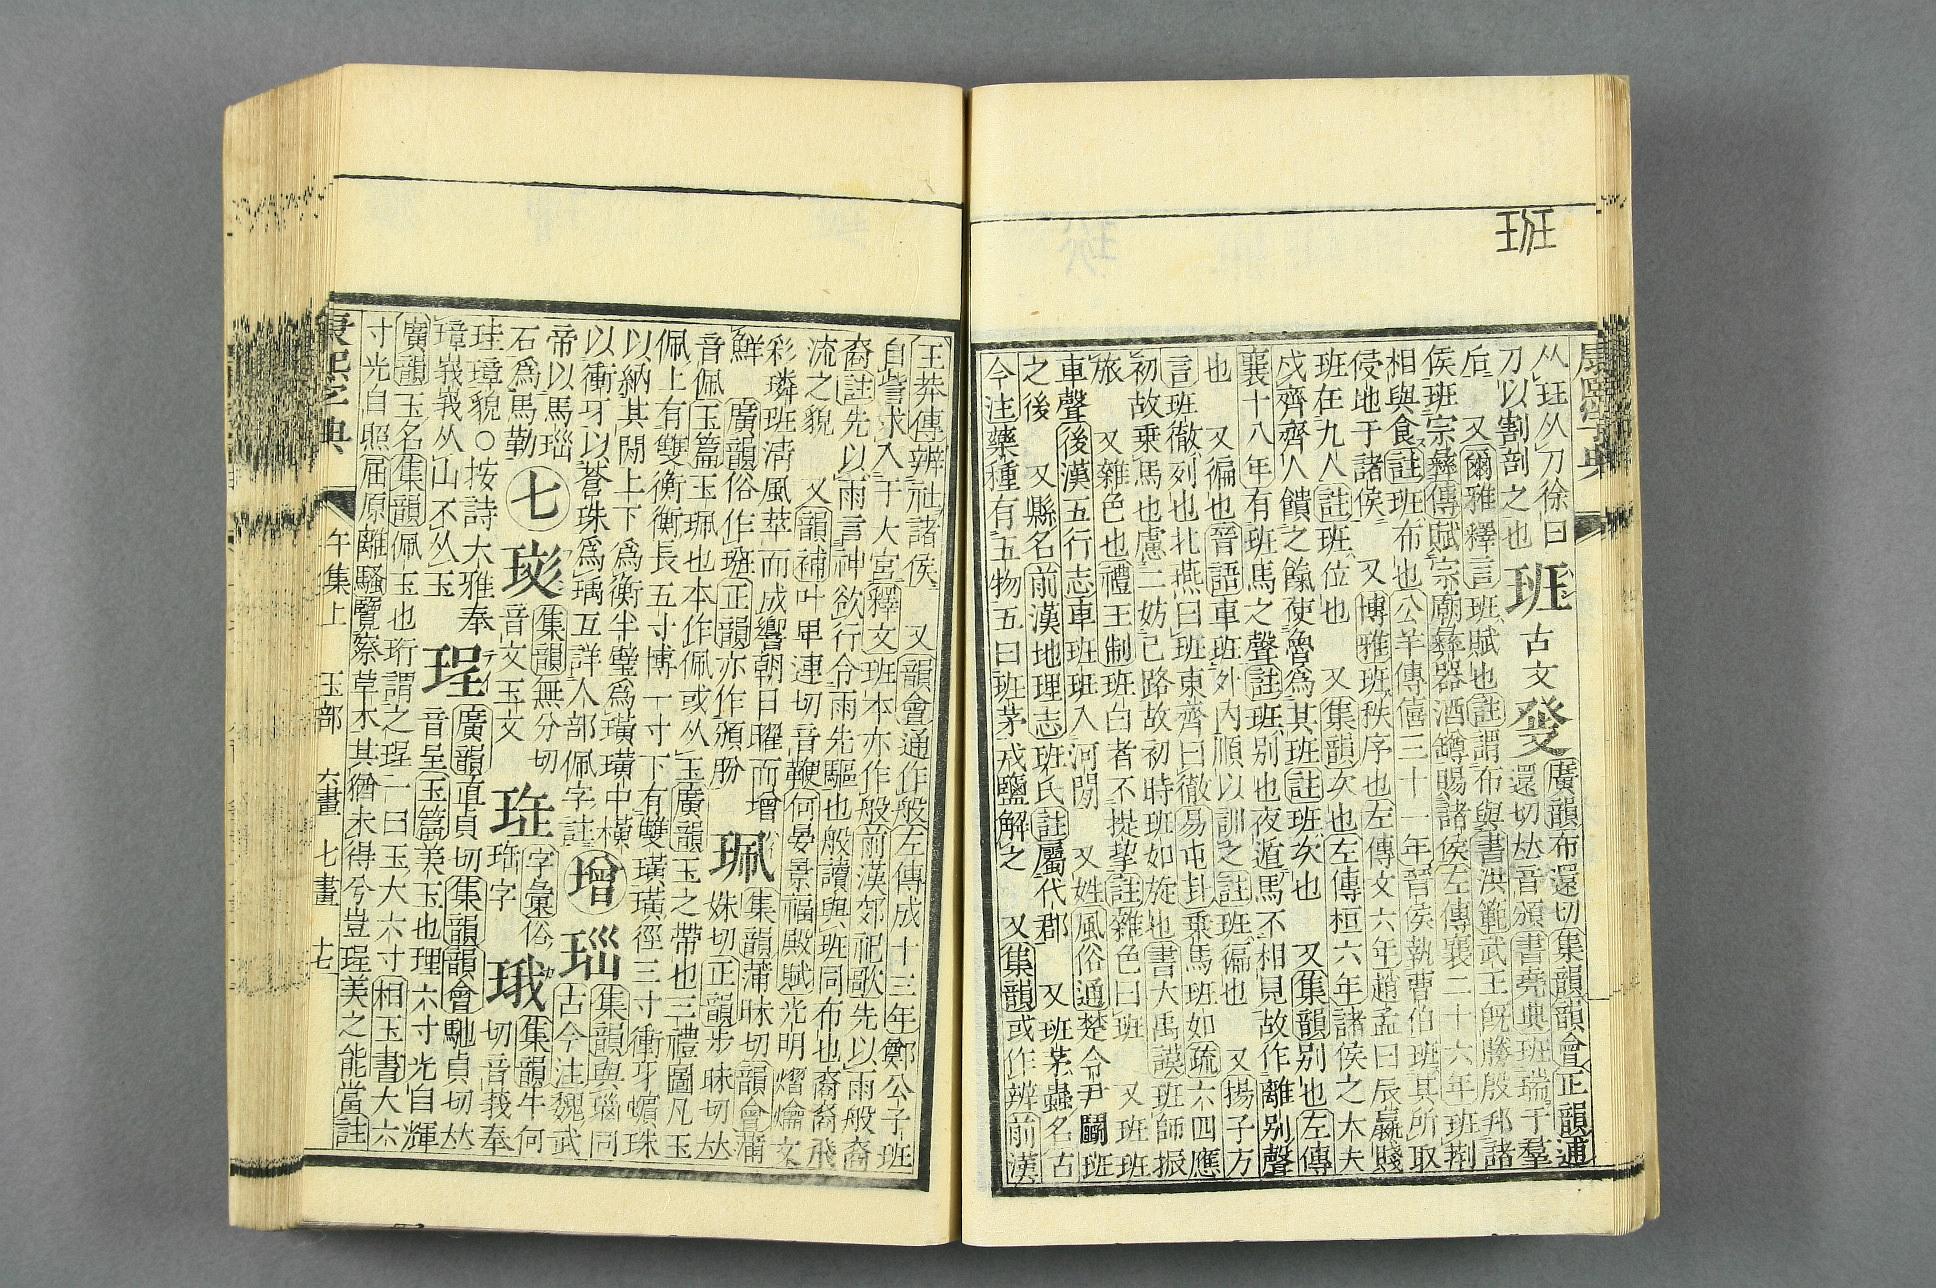 班
康熙字典
从玨从刀徐曰
刀以割剖之也
班 古文 廣韻布還切集韻韻會正韻逋
還切𠀤音頒書堯典班瑞于羣
后 又爾雅釋言班賦也註謂布與書洪範武王旣勝殷邦諸
侯班宗彝傳賦宗廟彝器酒罇賜諸侯左傳襄二十六年班荆
相與食註班布也公羊傳僖三十一年晉侯執曹伯班其所取
侵地于諸侯 又博雅班秩序也左傳文六年趙孟曰辰嬴賤
班在九人註班位也 又集韻次也左傳桓六年諸侯之大夫
戍齊齊人饋之餼使魯爲其班註班次也 又集韻别也左傳
襄十八年有班馬之聲註班别也夜遁馬不相見故作離别聲
也 又徧也晉語車班外內順以訓之註班徧也 又揚子方
言班徹列也北燕曰班東齊曰徹易屯卦乘馬班如疏六四應
初故乘馬也慮二妨己路故初時班如旋也書大禹謨班師振
旅 又雜色也禮王制班白者不提挈註雜色曰班 又班班
車聲後漢五行志車班班入河閒 又姓風俗通楚令尹鬬班
之後 又縣名前漢地理志班氏註屬代郡 又班茅蟲名古
今注藥種有五物五曰班茅戎鹽解之 又集韻或作辨前漢
王莽傳辨社諸侯 又韻會通作般左傳成十三年鄭公子班
自訾求入于大宮釋文班本亦作般前漢郊祀歌先以雨般裔
裔註先以雨言神欲行令雨先驅也般讀與班同布也裔裔飛
流之貌 又韻補叶𤰞連切音鞭何晏景福殿賦光明熠爚文
彩璘班淸風萃而成響朝日曜而增
鮮 廣韻俗作𤤳正韻亦作頒朌
珮 集韻蒲昧切韻會蒲
妹切正韻步昧切𠀤
音佩玉篇玉珮也本作佩或从玉廣韻玉之帶也三禮圖凡玉
佩上有雙衡衡長五寸博一寸下有雙璜璜徑三寸衝牙蠙珠
以納其閒上下爲衡半璧爲璜璜中橫
以衝牙以蒼珠爲瑀互詳人部佩字註
增 瑙 集韻與瑙同
古今注魏武
帝以馬瑙
石爲馬勒
七 集韻無分切
音文玉文
字彙俗
珤字
珴 集韻牛何
切音莪奉
珪璋貌○按詩大雅奉
璋峩峩从山不从玉
珵 廣韻直貞切集韻韻會馳貞切𠀤
音呈玉篇美玉也珵六寸光自輝
廣韻玉名集韻佩玉也珩謂之珵一曰玉大六寸相玉書大六
寸光自照屈原離騷覽察草木其猶未得兮豈珵美之能當註
康熙字典 午集上 玉部 六畫 七畫 十七